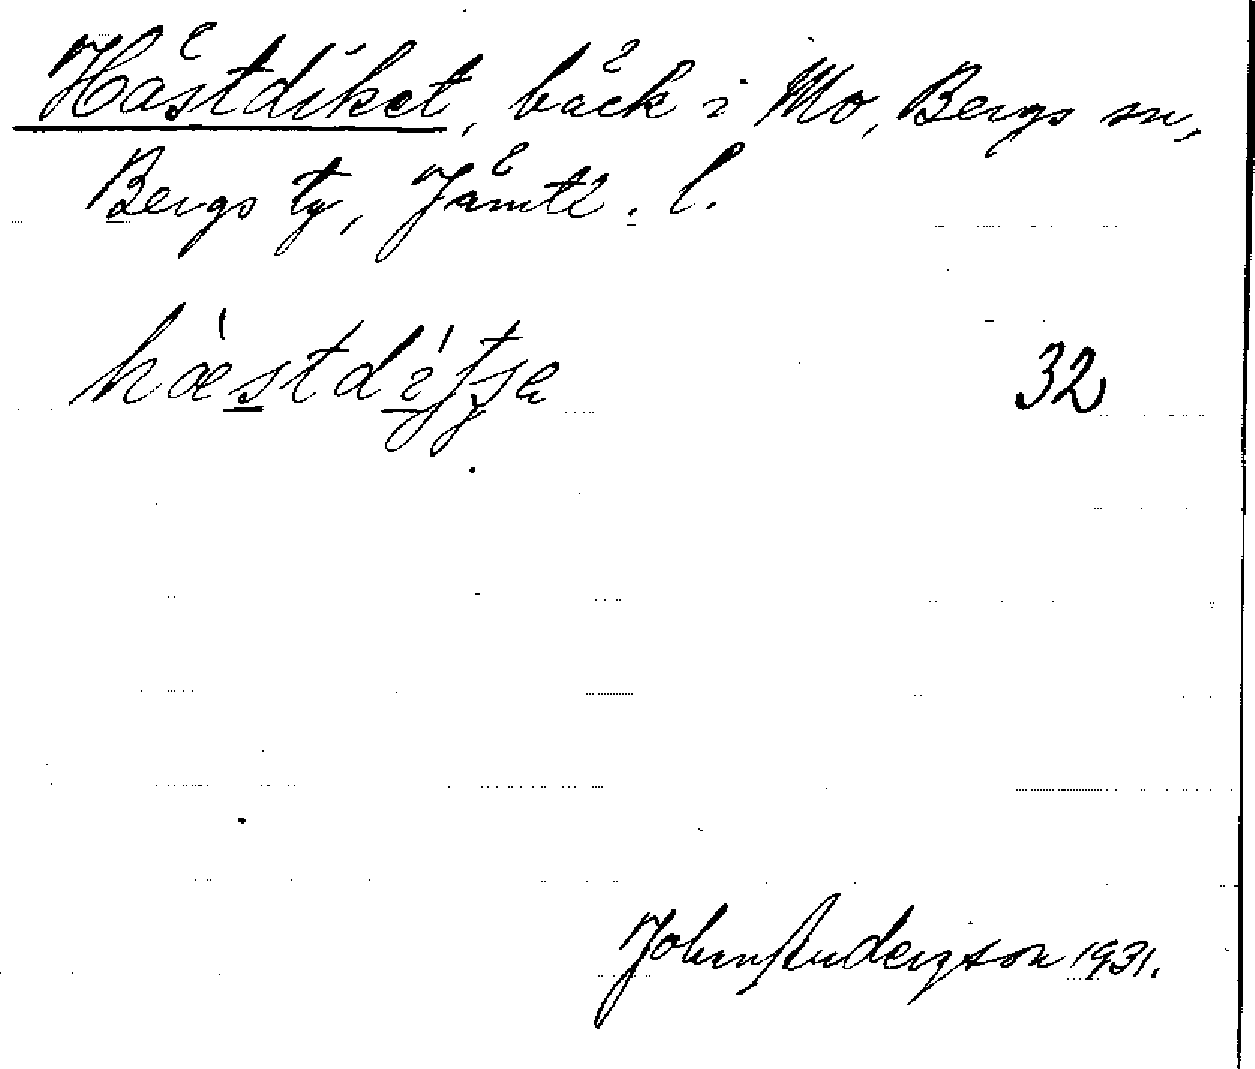 Hästdiket, bäck i Mo, Bergs sn,
Bergs tg, Jämtl. l.
32
John Anderzson 1931.